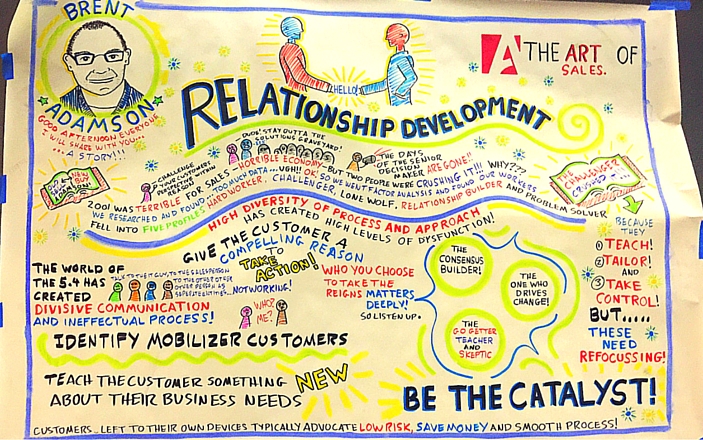 BRENT
ADAMSON
GOOD AFTERNOON EVERYONE
I WILL SHARE WITH YOU...
..A STORY!!!
HELLO!
A THE ART OF
SALES.
RELATIONSHIP DEVELOPMENT
DUDE! STAY OUTTA THE
SOLUTIONS GRAVEYARD!
CHALLENGE
YOUR CUSTOMERS
PERSPECTIVE WITHIN
REASON
THE DAYS
OF THE SENIOR
DECISION
MAKER ARE GONE!!
WHY???
2001 WAS TERRIBLE FOR SALES - HORRIBLE ECONOMY - BUT TWO PEOPLE WERE CRUSHING IT!!!
WE RESEARCHED AND FOUND TOO MUCH DATA...UGH!! OK! SO WE WENT FACTOR ANALYSIS AND FOUND OUR WORKERS
FELL INTO FIVE PROFILES HARD WORKER, CHALLENGER, LONE WOLF, RELATIONSHIP BUILDER AND PROBLEM SOLVER
THE
CHALLENGER
HIGH DIVERSITY OF PROCESS AND APPROACH
HAS CREATED HIGH LEVELS OF DYSFUNCTION!
BECAUSE
THEY
1 TEACH!
2 TAILOR!
AND
3 TAKE
CONTROL!
BUT.....
THESE
NEED
REFOCUSSING!
GIVE THE CUSTOMER A
COMPELLING REASON
TO
TAKE
ACTION!
THE WORLD OF
THE 5.4 HAS
CREATED
TALK TO THE GUY, TO THE SALESPERSON
TO THE OTHER
...NOTWORKING!
DIVISIVE COMMUNICATION
AND INEFFECTUAL PROCESS!
WHO?
ME?
WHO YOU CHOOSE
TO TAKE THE
REIGNS MATTERS
DEEPLY!
SO LISTEN UP.
THE
CONSENSUS
BUILDER!
THE
ONE WHO
DRIVES
CHANGE!
THE
GO GETTER
TEACHER
AND
SKEPTIC
IDENTIFY MOBILIZER CUSTOMERS
TEACH THE CUSTOMER SOMETHING NEW
ABOUT THEIR BUSINESS NEEDS
BE THE CATALYST!
CUSTOMERS...LEFT TO THEIR OWN DEVICES TYPICALLY ADVOCATE LOW RISK, SAVE MONEY AND SMOOTH PROCESS!